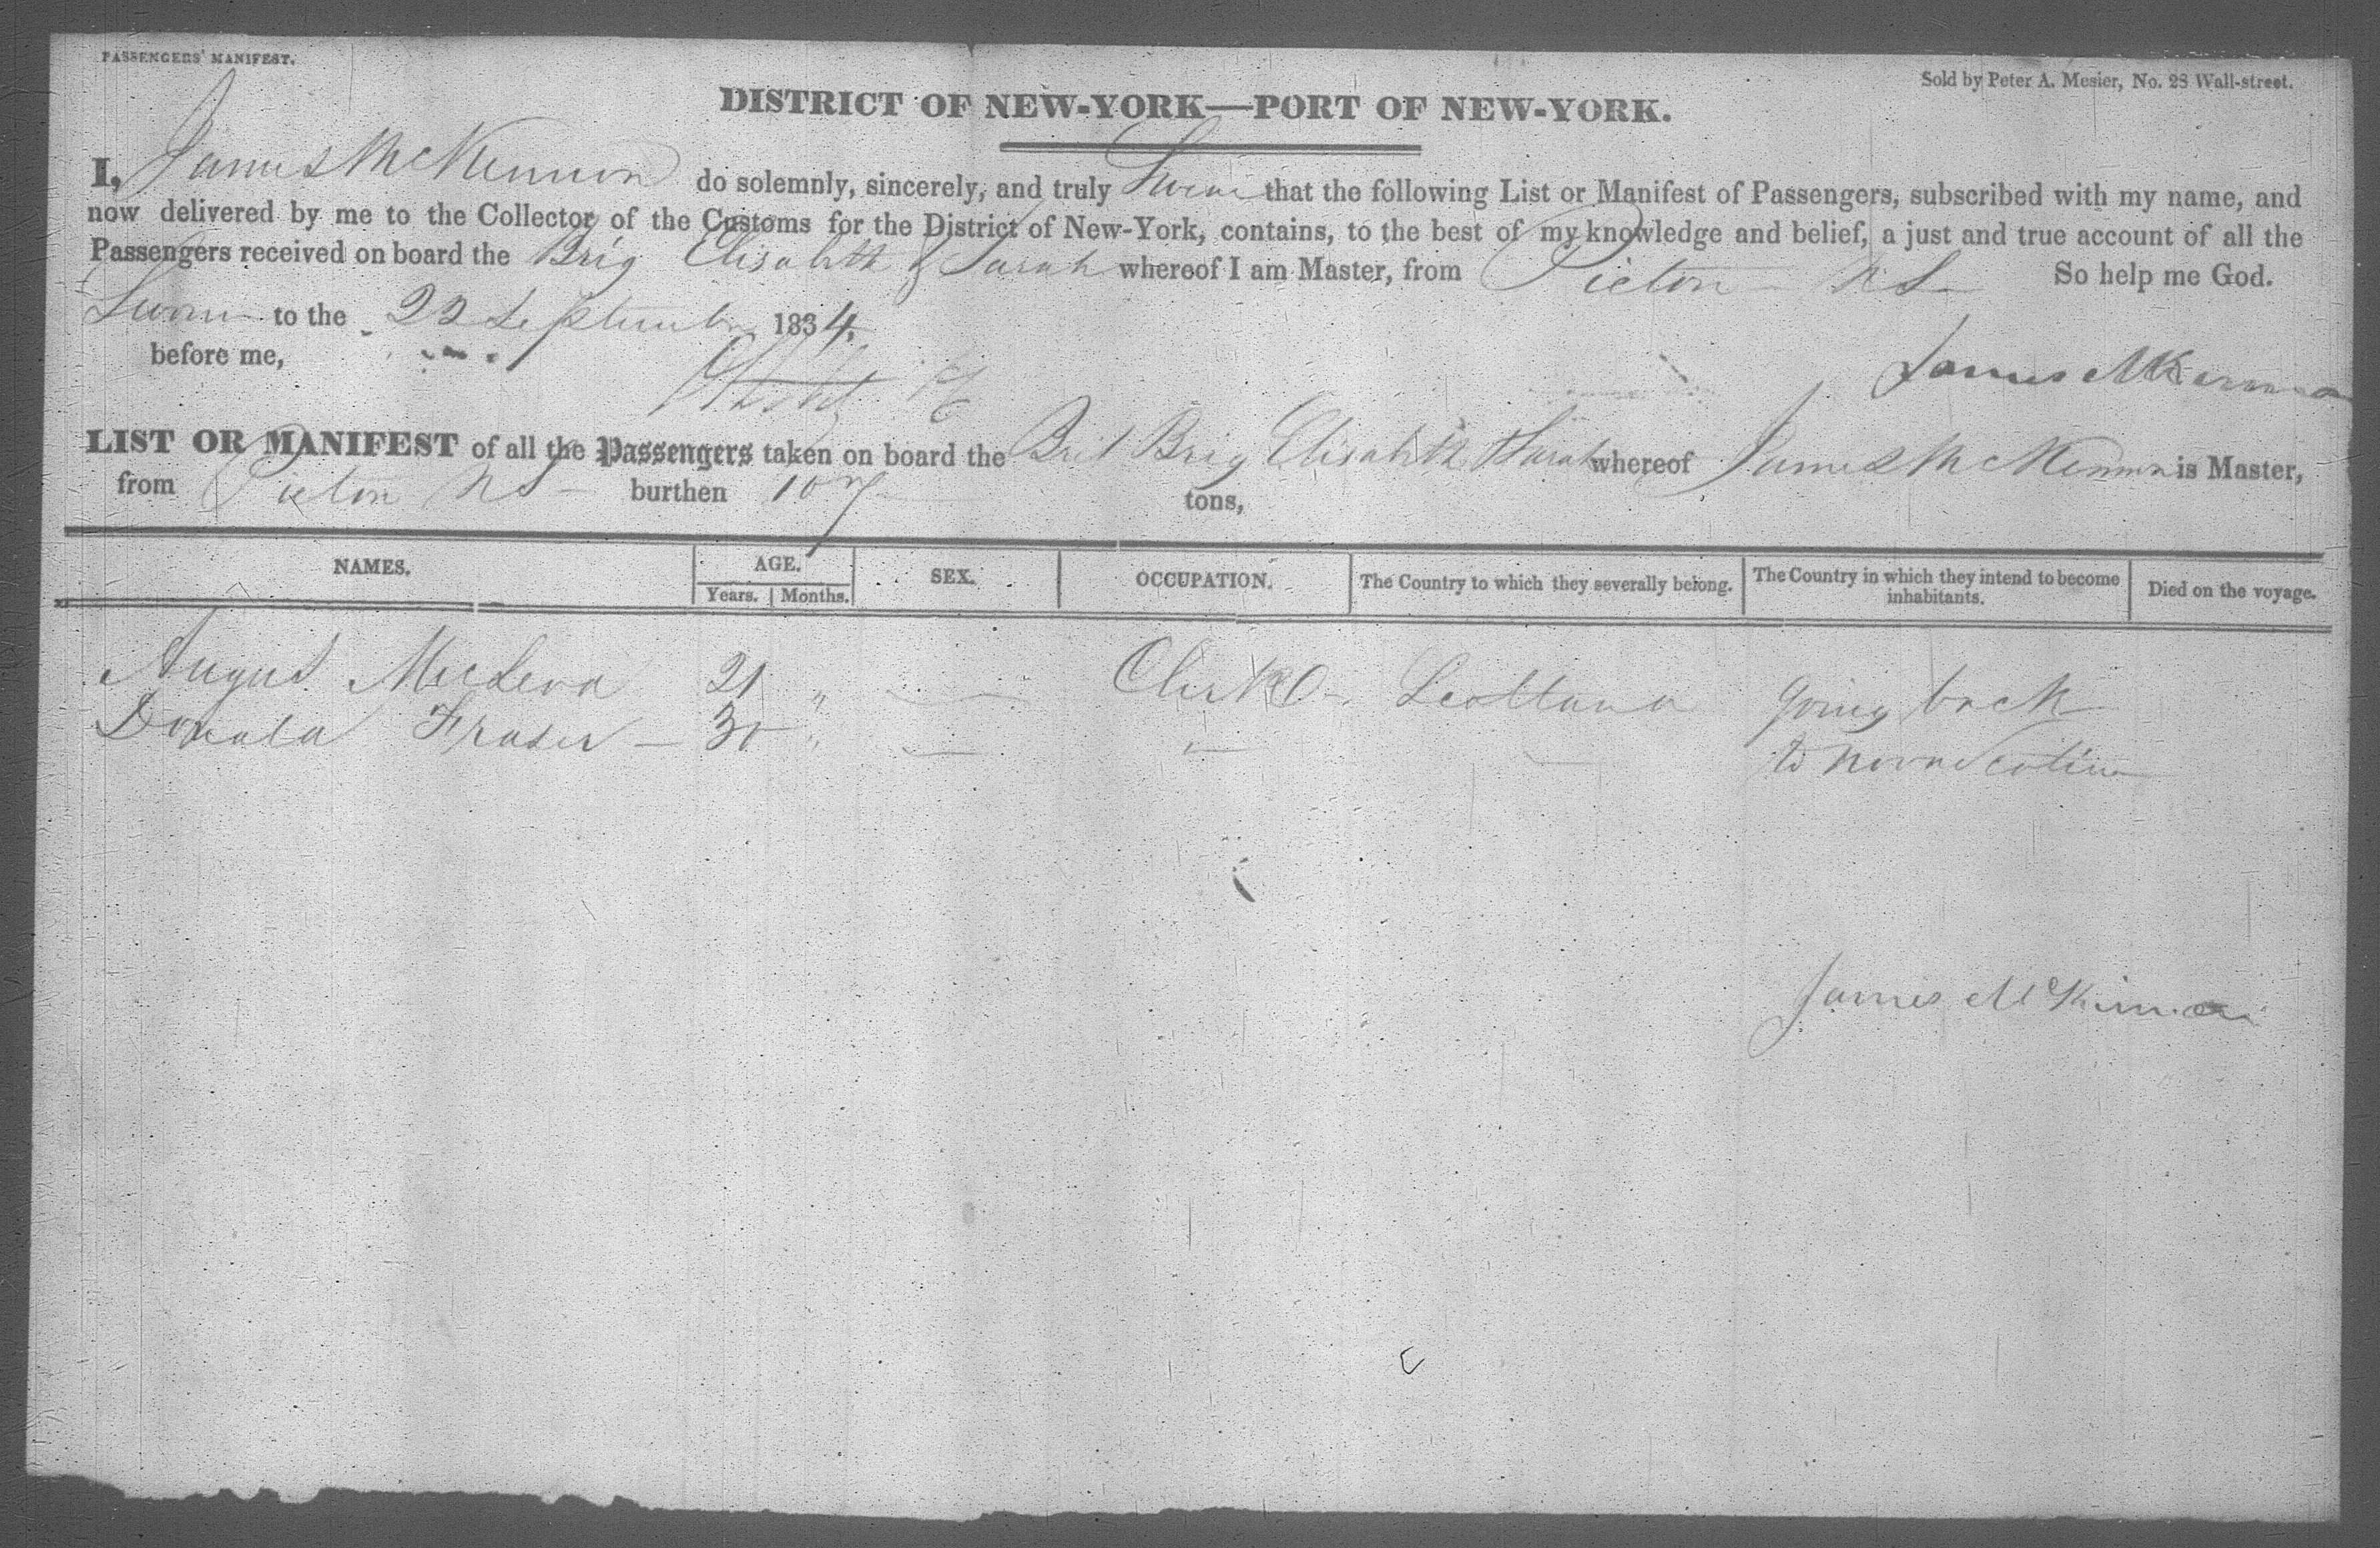 PASSENGERS' MANIFEST.
Sold by Peter A. Mesier, No. 28 Wall-street.
DISTRICT OF NEW-YORK—PORT OF NEW-YORK.
I, James McKennon do solemnly, sincerely, and truly Swear that the following List or Manifest of Passengers, subscribed with my name, and
now delivered by me to the Collector of the Customs for the District of New-York, contains, to the best of my knowledge and belief, a just and true account of all the
Passengers received on board the Brig Elisabeth & Sarah whereof I am Master, from Picton N S So help me God.
Sworn to the 22 September 1834.
before me,
James
LIST OR MANIFEST of all the Passengers taken on board the Brit Brig Elisabeth & Sarah whereof James McKennon is Master,
from Picton N S burthen 107 tons,
NAMES. AGE. SEX. OCCUPATION. The Country to which they severally belong. The Country in which they intend to become inhabitants. Died on the voyage.
Years. Months.
Angus 21 " — Clerk Scotland going back
Donald Fraser — 30 " — — — to Nova Scotia
James